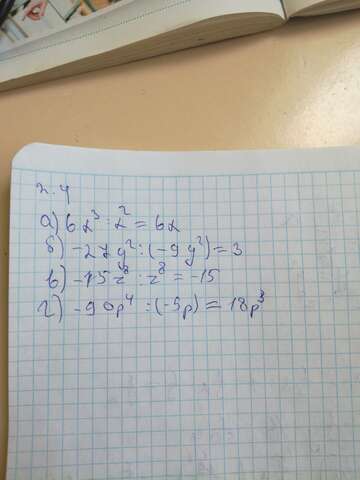 н. 4
а) 6x³ : x² = 6x
б) -27y² : (-9y²) = 3
в) -15z⁸ : z⁸ = -15
г) -90p⁴ : (-5p) = 18p³